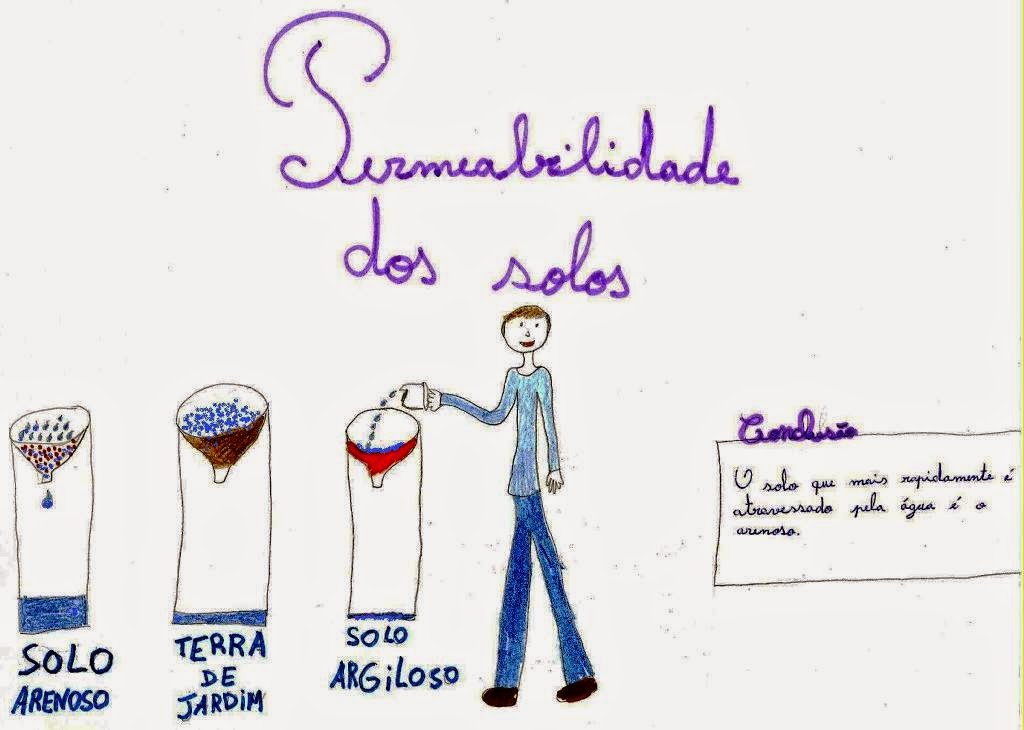 Permeabilidade
dos solos
Conclusão
O solo que mais rapidamente é
atravessado pela água é o
arenoso.
SOLO
ARENOSO
TERRA
DE
JARDIM
SOLO
ARGILOSO